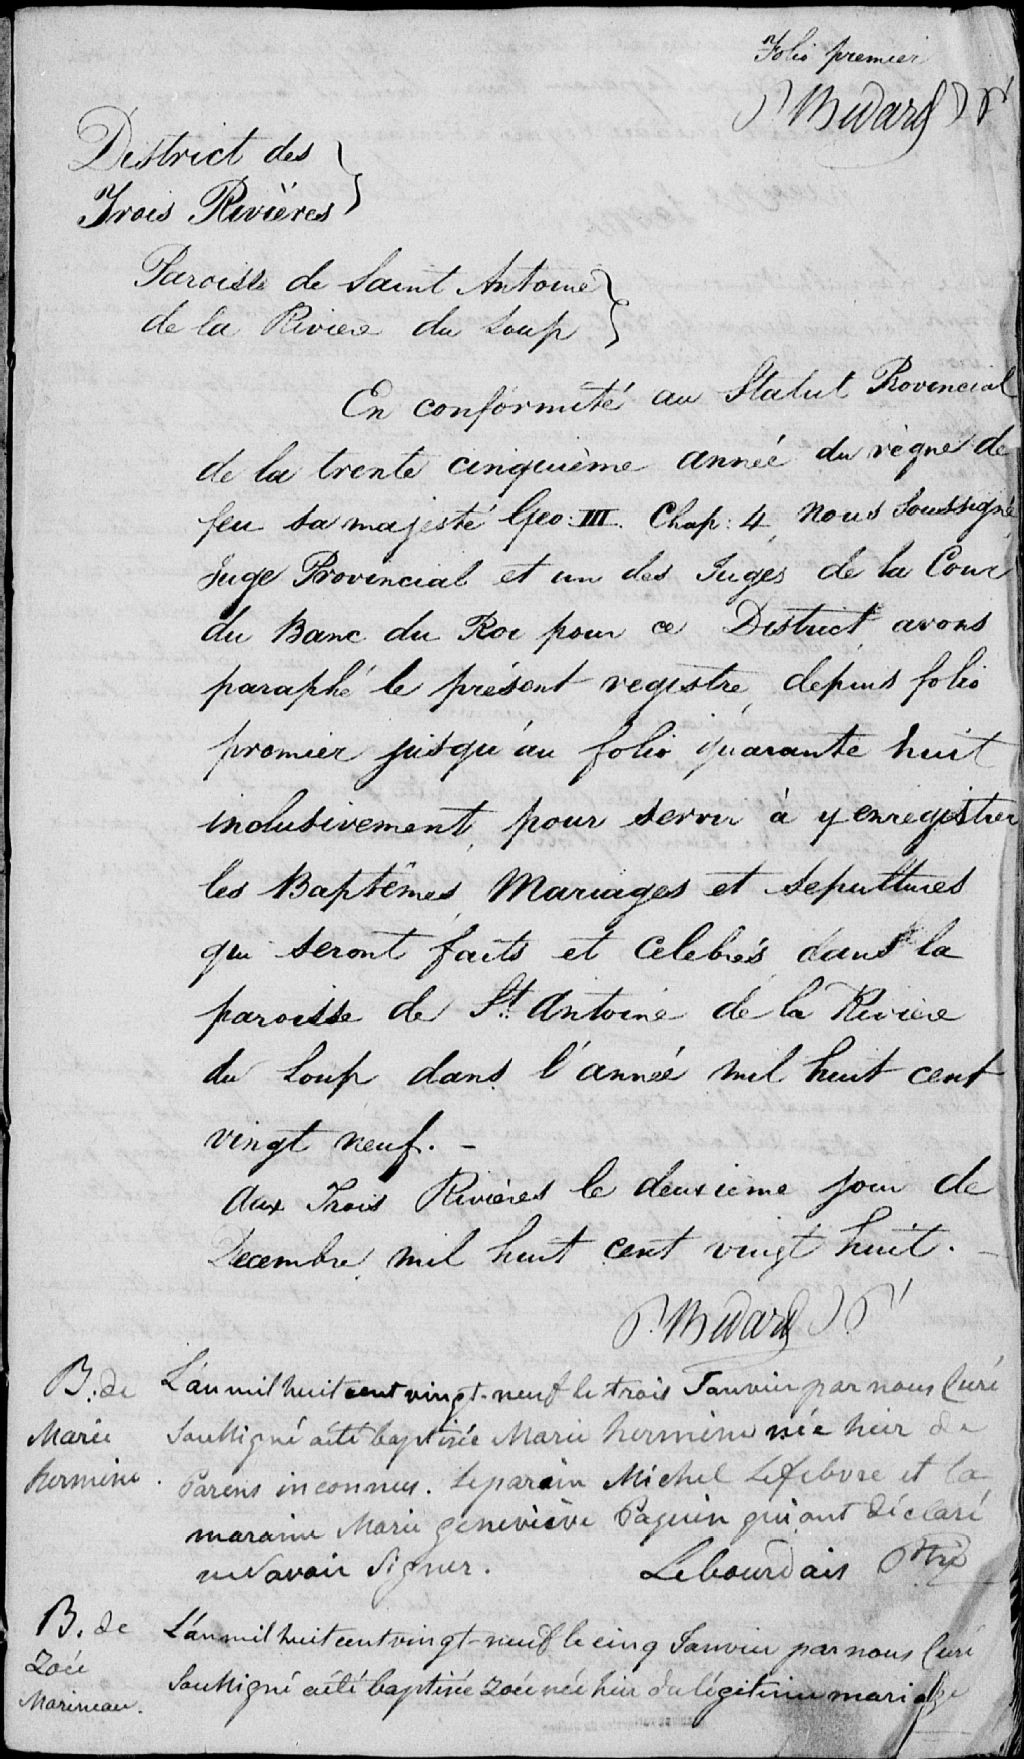 Folio premier
P. Bedard J. P.
District des
Trois Rivières
Paroisse de Saint Antoine
de la Riviere du Loup
En conformité au Statut Provincial
de la trente cinquième année du règne de
feu sa majesté Geo: III. Chap: 4, nous soussigné
Juge Provincial et un des Juges de la Cour
du Banc du Roi pour ce District avons
paraphé le présent registre, depuis folio
premier jusqu'au folio quarante huit
inclusivement, pour servir à y enregistrer
les Baptêmes, Mariages et sepultures
qui seront faits et celebrés dans la
paroisse de St. Antoine de la Riviere
du Loup dans l'année mil huit cent
vingt neuf. -
Aux Trois Rivières le deuxième jour de
Decembre mil huit cent vingt huit. -
P. Bedard J. P.
B. de
Marie
hermine.
L'an mil huit cent vingt-neuf le trois Janvier par nous Curé
Soussigné a été baptisée Marie hermine née hier de
Parens inconnus. Le parain Michel Lefebvre et la
maraine Marie geneviève Paquin qui ont déclaré
ne savoir signer.
Lebourdais Ptre
B. de
Zoée
Marineau.
L'an mil huit cent vingt-neuf le cinq Janvier par nous Curé
Soussigné a été baptisée Zoée née hier du légitime mariage